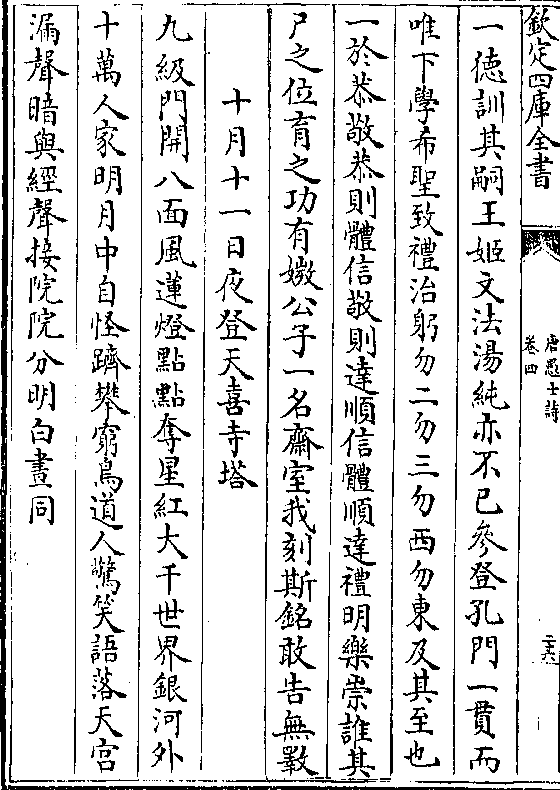 欽定四庫全書
唐愚士詩
卷四
一徳訓其嗣王姬文法湯純亦不已參登孔門一貫而
唯下學希聖致禮治躬勿二勿三勿西勿東及其至也
一於恭敬恭則體信敬則達順信體順達禮明樂崇誰其
尸之位育之功有媺公子一名齋室我刻斯銘敢告無斁
十月十一日夜登天喜寺塔
九級門開八面風蓮燈點點奪星紅大千世界銀河外
十萬人家明月中自怪躋攀窮鳥道人驚笑語落天宫
漏聲暗與經聲接院院分明白晝同